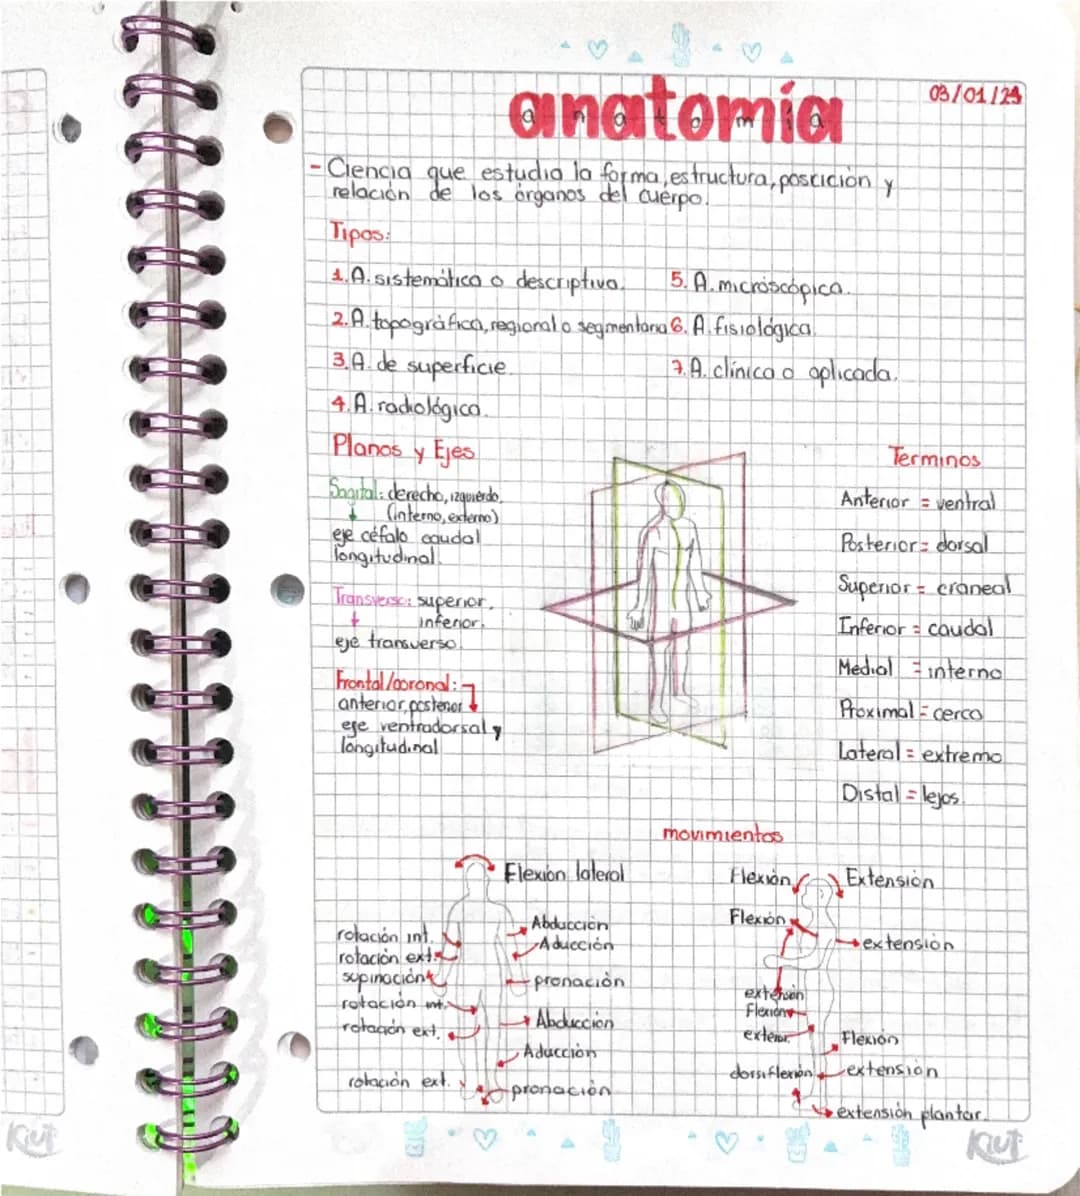 03/01/24
anatomía
- Ciencia que estudia la forma, estructura, poscición y
relación de los órganos del cuerpo.
Tipos:
1. A. sistemática o descriptiva.
2. A. topográfica, regional o segmentaria
3. A. de superficie.
4. A. radiológica.
5. A. microscópica.
6. A. fisiológica.
7. A. clínica o aplicada.
Planos y Ejes
Sagital: derecho, izquierdo.
(interno, externo)
eje céfalo caudal
longitudinal.
Transverso: superior.
inferior.
eje transverso.
Frontal/coronal:
anterior, posterior
eje ventrodorsal y
longitudinal
Terminos
Anterior = ventral
Posterior = dorsal
Superior = craneal
Inferior = caudal
Medial = interno
Proximal = cerca
Lateral = extremo
Distal = lejos.
movimientos
Flexión lateral
Abducción
Aducción
pronación
Abducción
Aducción
pronación
rotación int.
rotación ext.
supinación
rotación int.
rotación ext.
rotación ext.
Flexión
Extensión
Flexión
extensión
extensión
Flexión
Flexión
extensión
dorsiflexión
extensión plantar.
Kiut
Kiut